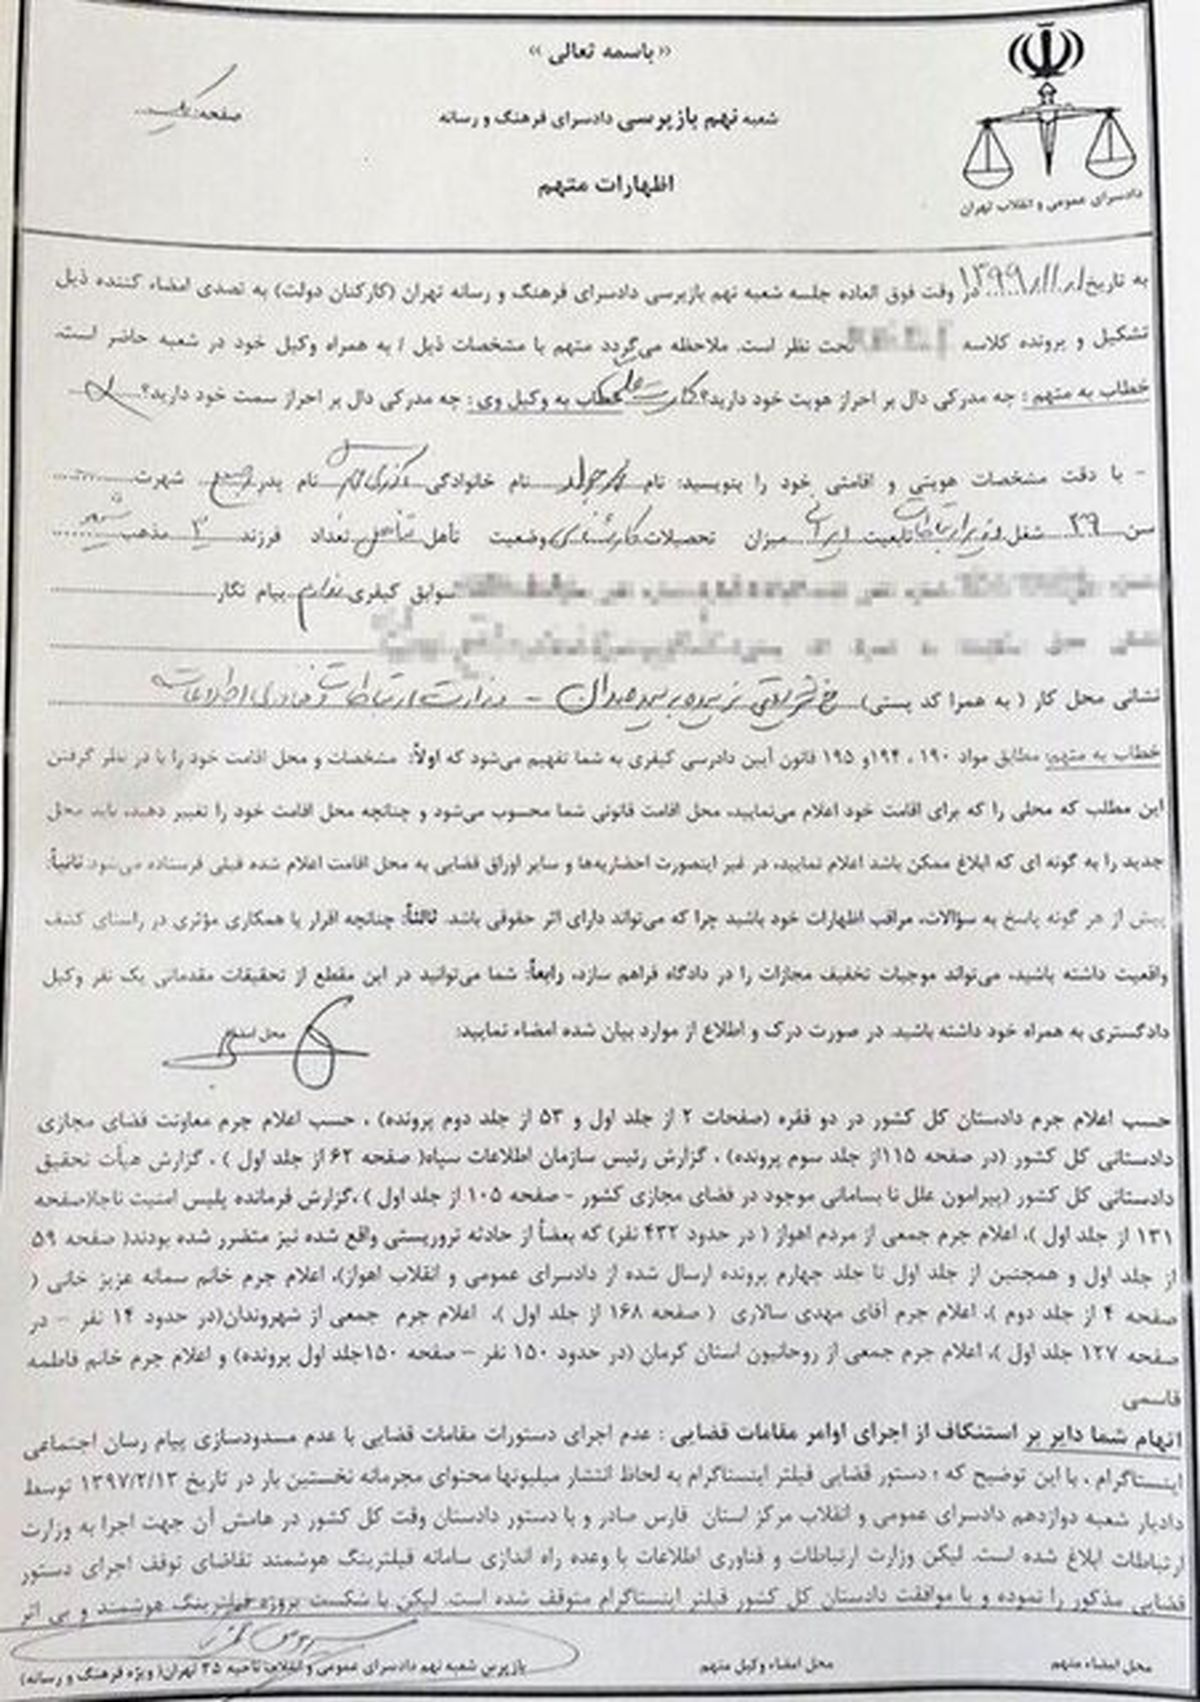 «باسمه تعالی»
صفحه: یک
شعبه نهم بازپرسی دادسرای فرهنگ و رسانه
اظهارات متهم
دادسرای عمومی و انقلاب تهران
به تاریخ ۱۳۹۹/۱۱/۱ در وقت فوق العاده جلسه شعبه نهم بازپرسی دادسرای فرهنگ و رسانه تهران (کارکنان دولت) به تصدی امضاء کننده ذیل
تشکیل و پرونده کلاسه تحت نظر است. ملاحظه می‌گردد متهم با مشخصات ذیل / به همراه وکیل خود در شعبه حاضر است.
خطاب به متهم: چه مدرکی دال بر احراز هویت خود دارید؟ کارت ملی خطاب به وکیل وی: چه مدرکی دال بر احراز سمت خود دارید؟
- با دقت مشخصات هویتی و اقامتی خود را بنویسید: نام محمدجواد نام خانوادگی آذری جهرمی نام پدر شهرت
سن ۳۹ شغل وزیر ارتباطات تابعیت ایرانی میزان تحصیلات کارشناسی وضعیت تأهل متأهل تعداد فرزند ۲ مذهب شیعه
سوابق کیفری ندارم پیام نگار
نشانی محل کار (به همرا کد پستی) خ شریعتی نرسیده به سیدخندان - وزارت ارتباطات و فناوری اطلاعات
خطاب به متهم: مطابق مواد ۱۹۰ ، ۱۹۴و ۱۹۵ قانون آیین دادرسی کیفری به شما تفهیم می‌شود که اولاً: مشخصات و محل اقامت خود را با در نظر گرفتن
این مطلب که محلی را که برای اقامت خود اعلام می‌نمایید، محل اقامت قانونی شما محسوب می‌شود و چنانچه محل اقامت خود را تغییر دهید، باید محل
جدید را به گونه ای که ابلاغ ممکن باشد اعلام نمایید، در غیر اینصورت احضاریه‌ها و سایر اوراق قضایی به محل اقامت اعلام شده قبلی فرستاده می‌شود ثانیاً:
پیش از هر گونه پاسخ به سؤالات، مراقب اظهارات خود باشید چرا که می‌تواند دارای اثر حقوقی باشد. ثالثاً: چنانچه اقرار یا همکاری مؤثری در راستای کشف
واقعیت داشته باشید، می‌تواند موجبات تخفیف مجازات را در دادگاه فراهم سازد، رابعاً: شما می‌توانید در این مقطع از تحقیقات مقدماتی یک نفر وکیل
دادگستری به همراه خود داشته باشید. در صورت درک و اطلاع از موارد بیان شده امضاء نمایید: محل امضاء
حسب اعلام جرم دادستان کل کشور در دو فقره (صفحات ۲ از جلد اول و ۵۳ از جلد دوم پرونده) ، حسب اعلام جرم معاونت فضای مجازی
دادستانی کل کشور (در صفحه ۱۱۵از جلد سوم پرونده) ، گزارش رئیس سازمان اطلاعات سپاه( صفحه ۶۲ از جلد اول ) ، گزارش هیأت تحقیق
دادستانی کل کشور (پیرامون علل نا بسامانی موجود در فضای مجازی کشور - صفحه ۱۰۵ از جلد اول ) ،گزارش فرمانده پلیس امنیت ناجا(صفحه
۱۳۱ از جلد اول )، اعلام جرم جمعی از مردم اهواز ( در حدود ۴۳۲ نفر) که بعضاً از حادثه تروریستی واقع شده نیز متضرر شده بودند( صفحه ۵۹
از جلد اول و همچنین از جلد اول تا جلد چهارم پرونده ارسال شده از دادسرای عمومی و انقلاب اهواز)، اعلام جرم خانم سمانه عزیز خانی (
صفحه ۴ از جلد دوم )، اعلام جرم آقای مهدی سالاری ( صفحه ۱۶۸ از جلد اول )، اعلام جرم جمعی از شهروندان(در حدود ۱۴ نفر - در
صفحه ۱۲۷ جلد اول )، اعلام جرم جمعی از روحانیون استان کرمان (در حدود ۱۵۰ نفر - صفحه ۱۵۰جلد اول پرونده) و اعلام جرم خانم فاطمه
قاسمی
اتهام شما دایر بر استنکاف از اجرای اوامر مقامات قضایی : عدم اجرای دستورات مقامات قضایی با عدم مسدودسازی پیام رسان اجتماعی
اینستاگرام ، با این توضیح که : دستور قضایی فیلتر اینستاگرام به لحاظ انتشار میلیونها محتوای مجرمانه نخستین بار در تاریخ ۱۳۹۷/۲/۱۳ توسط
دادیار شعبه دوازدهم دادسرای عمومی و انقلاب مرکز استان فارس صادر و با دستور دادستان وقت کل کشور در هامش آن جهت اجرا به وزارت
ارتباطات ابلاغ شده است. لیکن وزارت ارتباطات و فناوری اطلاعات با وعده راه اندازی سامانه فیلترینگ هوشمند تقاضای توقف اجرای دستور
قضایی مذکور را نموده و با موافقت دادستان کل کشور فیلتر اینستاگرام متوقف شده است. لیکن با شکست پروژه فیلترینگ هوشمند و بی اثر
محل امضاء متهم محل امضاء وکیل متهم بازپرس شعبه نهم دادسرای عمومی و انقلاب ناحیه ۳۵ تهران( ویژه فرهنگ و رسانه)